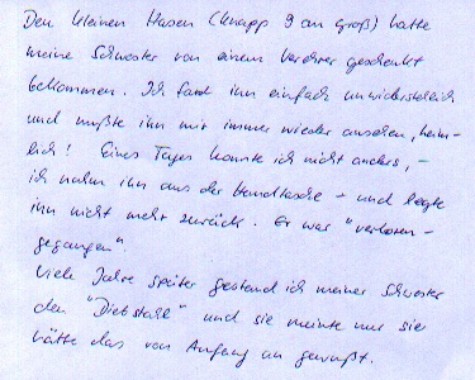 Den kleinen Hasen (knapp 9 cm groß) hatte
meine Schwester von einem Verehrer geschenkt
bekommen. Ich fand ihn einfach unwiderstehlich
und mußte ihn mir immer wieder ansehen, heim-
lich! Eines Tages konnte ich nicht anders, -
ich nahm ihn aus der Handtasche - und legte
ihn nicht mehr zurück. Er war "verloren-
gegangen".
Viele Jahre später gestand ich meiner Schwester
den "Diebstahl" und sie meinte nur sie
hätte das von Anfang an gewußt.